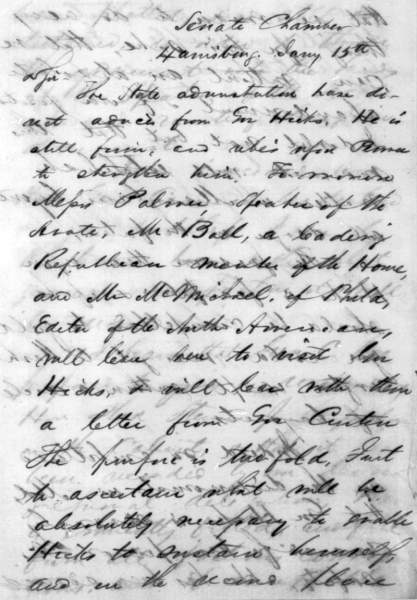 Senate Chamber
Harrisburg. Jany 15th
Dr Sir -
The State administration have di-
rect advices from Gov Hicks. He is
still firm, and relies upon Penna
to strengthen him. To-morrow
Messrs Palmer, Speaker of the
Senate, Mr Ball, a leading
Republican member of the House,
and Mr McMichael, of Phila,
Editor of the North American,
will leave here to visit Gov
Hicks, & will bear with them
a letter from Gov Curtin
The purpose is two fold, First
to ascertain what will be
absolutely necessary to enable
Hicks to sustain himself,
and in the second place